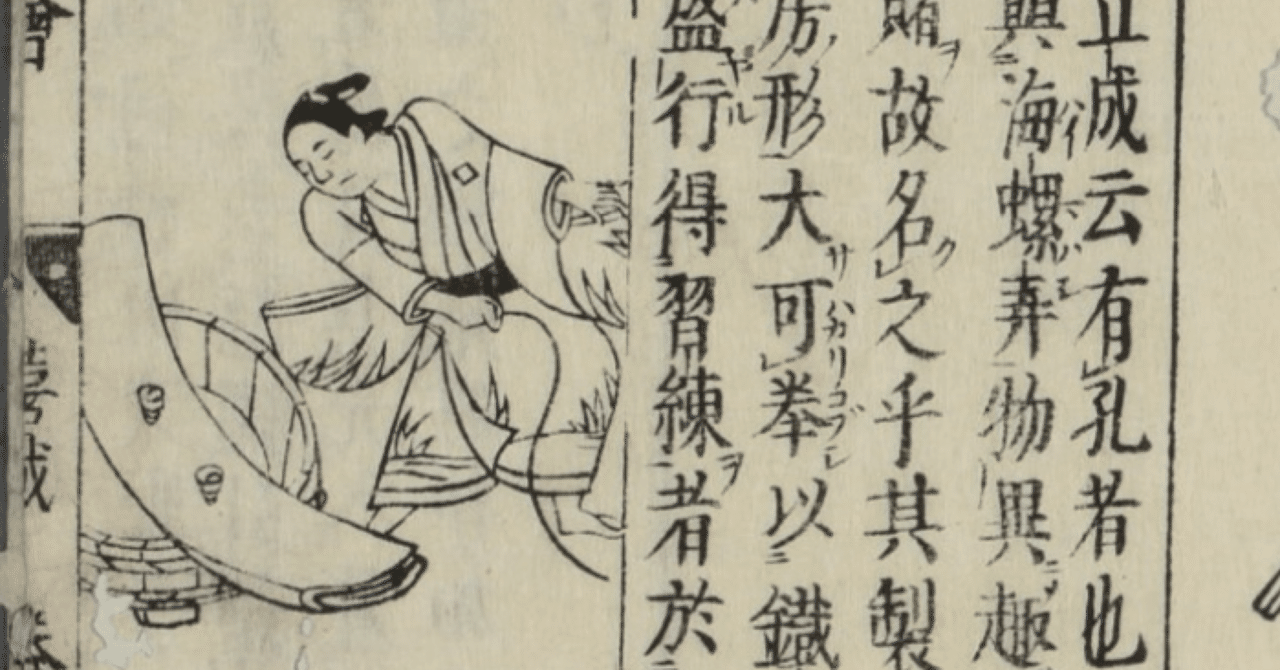 成云有孔者也
與海螺弄物異趣
賭故名之乎其製
房形大可拳以鐵
盛行得習練者於
會